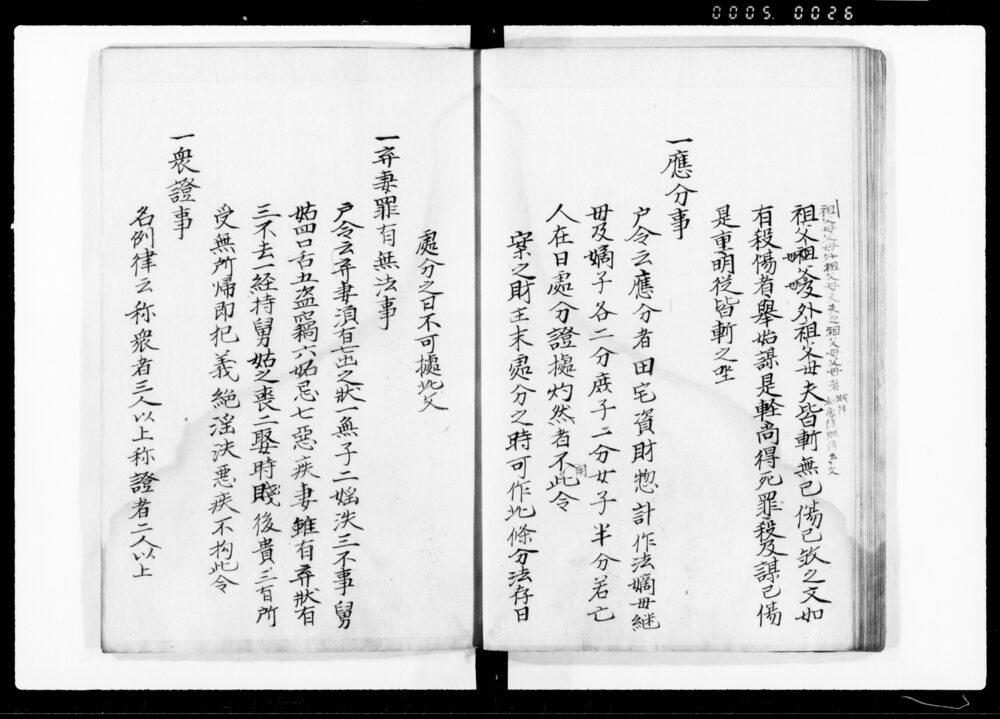 0005 0026
祖父母父母外祖父母夫夫之祖父母父母者
祖父祖父母父母外祖父母夫皆斬無已傷已敎之文如
有殺傷者舉始謀是軽尚得死罪殺及謀已傷
是重明従皆斬之唑
一應分事
戸令云應分者田宅資財惣計作法嫡母継
母及嫡子各二分庶子一分女子半分若亡
人在日處分證㩀灼然者不用此令
案之財主未處分之時可作此條分法存日
處分之日不可㩀此文
一弃妻罪有無法事
戸令云弃妻須有七出之状一無子二婬泆三不事舅
姑四口舌五盗竊六妬忌七惡疾妻雖有弃状有
三不去一経持舅姑之喪二娶時賎後貴三有所
受無所帰即犯義絶滛泆惡疾不拘此令
一衆證事
名例律云称衆者三人以上称證者二人以上